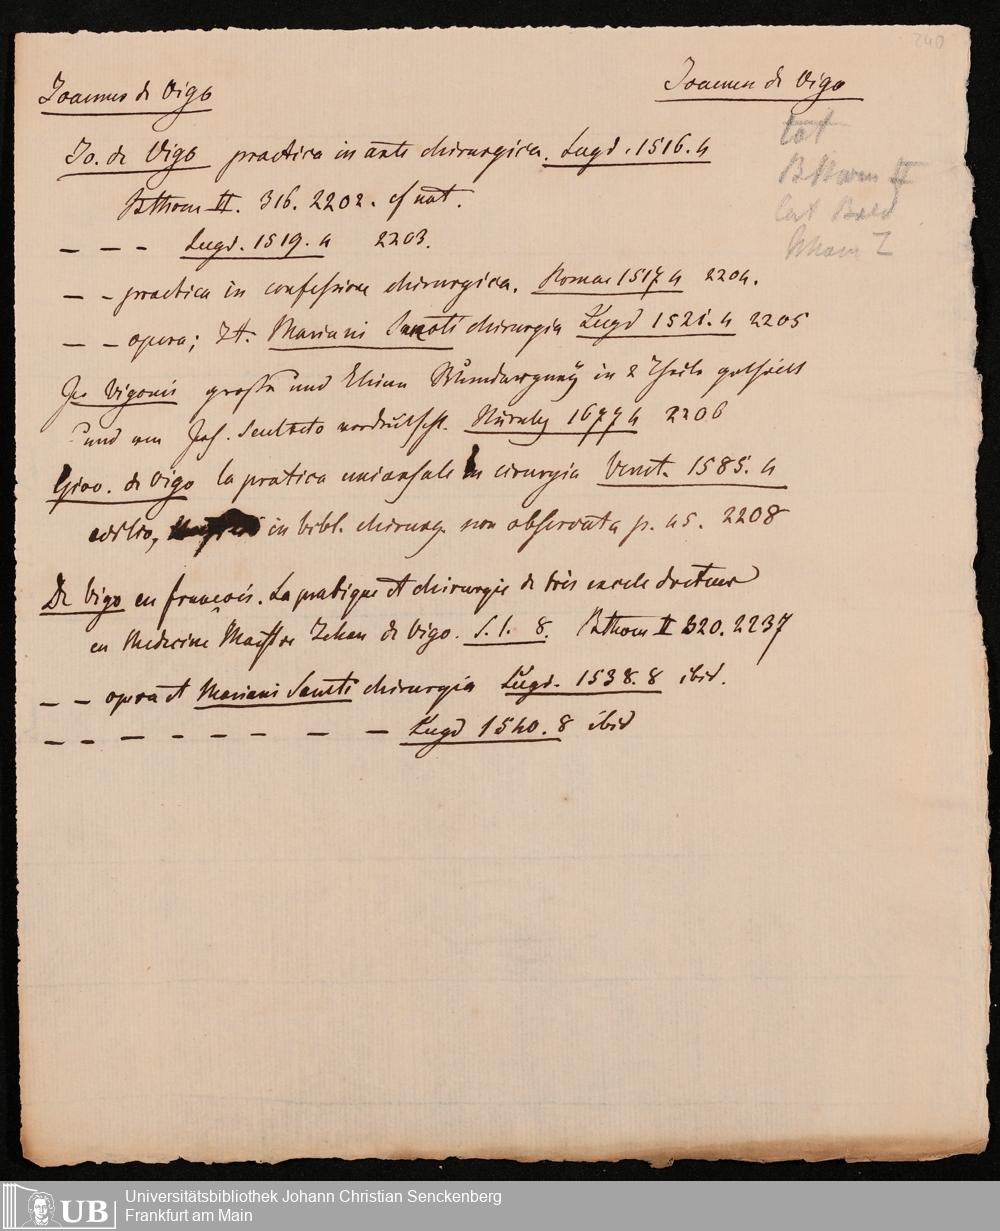 240
Joannes de Vigo
Joannes de Vigo
Jo. de Vigo practica in arte chirurgica. Lugd. 1516. 4
BThom II. 316. 2202. cf nat.
— — — Lugd. 1519. 4 2203.
— — practica in confessione chirurgica. Romae 1517 4 2204.
— — opera; It. Mariani Sancti chirurgia Lugd 1521. 4 2205
Jo Vigonis große und kleine Wundarzney in 2 Theile getheilt
und von Joh. Sculteto verdeutscht. Nürnbg 1677 4 2206
Giov. de Vigo la pratica universale in cirurgia Venet. 1585. 4
editio, in bibl. chirurg. non observata p. 45. 2208
De Vigo en françois. La pratique et chirurgie de très excele docteur
en Medecine Maistre Jehan de Vigo. S. l. 8. BThom II 320. 2237
— — opera et Mariani Sancti chirurgia Lugd. 1538. 8 ibid.
— — — — — — — — Lugd 1540. 8 ibid
BThom II
cat Bald
UB
Universitätsbibliothek Johann Christian Senckenberg
Frankfurt am Main